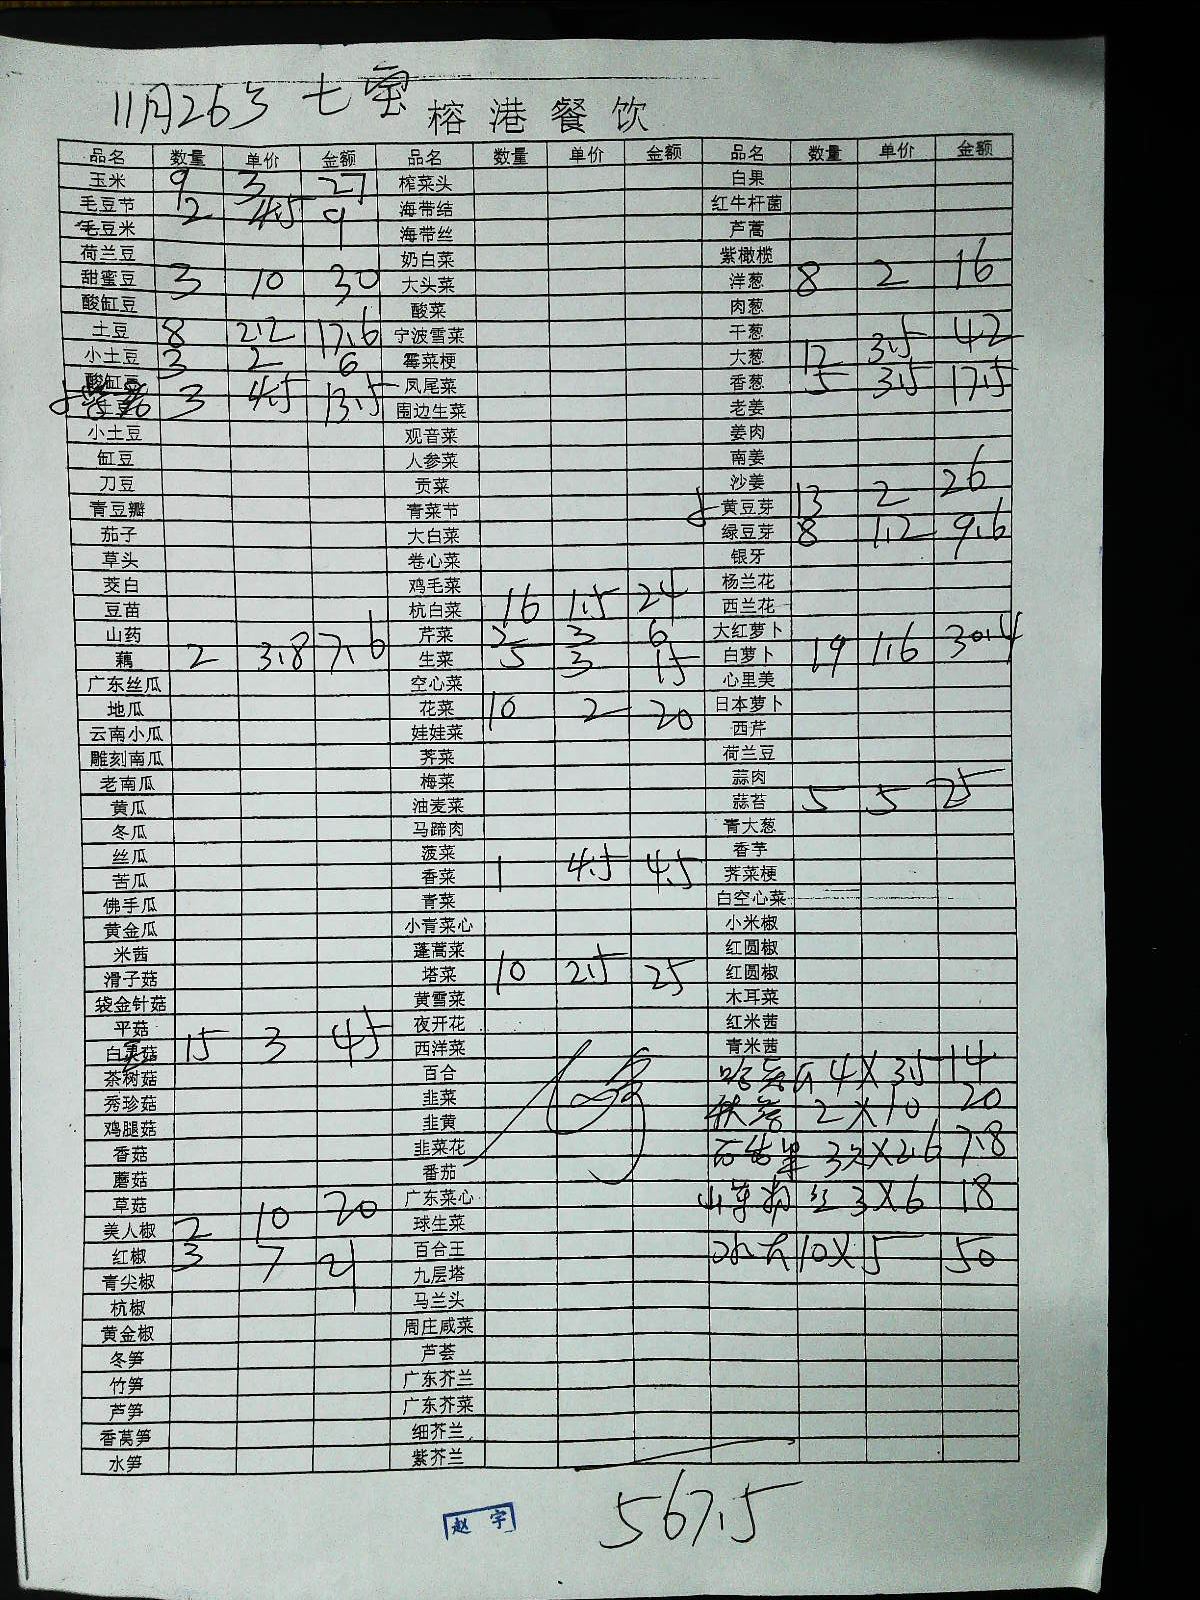 11月26号 七宝 榕港餐饮
品名 数量 单价 金额 品名 数量 单价 金额 品名 数量 单价 金额
玉米 9 3 27 榨菜头 白果
毛豆节 2 4.5 9 海带结 红牛杆菌
毛豆米 海带丝 芦蒿
荷兰豆 奶白菜 紫橄榄
甜蜜豆 3 10 30 大头菜 洋葱 8 2 16
酸缸豆 酸菜 肉葱
土豆 8 2.2 17.6 宁波雪菜 干葱
小土豆 3 2 6 霉菜梗 大葱 12 3.5 42
酸缸豆 凤尾菜 香葱 5 3.5 17.5
土豆 3 4.5 13.5 围边生菜 老姜
小土豆 观音菜 姜肉
缸豆 人参菜 南姜
刀豆 贡菜 沙姜
青豆瓣 青菜节 黄豆芽 13 2 26
茄子 大白菜 绿豆芽 8 1.2 9.6
草头 卷心菜 银牙
茭白 鸡毛菜 杨兰花
豆苗 杭白菜 16 1.5 24 西兰花
山药 芹菜 2 3 6 大红萝卜
藕 2 3.8 7.6 生菜 5 3 15 白萝卜 19 1.6 30.4
广东丝瓜 空心菜 心里美
地瓜 花菜 10 2 20 日本萝卜
云南小瓜 娃娃菜 西芹
雕刻南瓜 荠菜 荷兰豆
老南瓜 梅菜 蒜肉
黄瓜 油麦菜 蒜苔 5 5 25
冬瓜 马蹄肉 青大葱
丝瓜 菠菜 香芋
苦瓜 香菜 1 4.5 4.5 荠菜梗
佛手瓜 青菜 白空心菜
黄金瓜 小青菜心 小米椒
米茜 蓬蒿菜 红圆椒
滑子菇 塔菜 10 2.5 25 红圆椒
袋金针菇 黄雪菜 木耳菜
平菇 夜开花 红米茜
白灵菇 15 3 45 西洋菜 青米茜
茶树菇 百合 4X3.5 14
秀珍菇 韭菜 2X10 20
鸡腿菇 韭黄
香菇 韭菜花 X2.6 7.8
蘑菇 番茄
草菇 广东菜心 3X6 18
美人椒 2 10 20 球生菜
红椒 3 7 21 百合王 10X5 50
青尖椒 九层塔
杭椒 马兰头
黄金椒 周庄咸菜
冬笋 芦荟
竹笋 广东芥兰
芦笋 广东芥菜
香莴笋 细芥兰
水笋 紫芥兰
567.5
赵宇